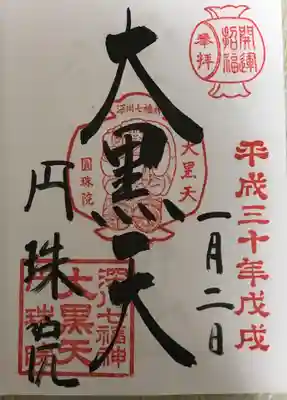 開運
招福
奉拝
平成三十年戊戌
一月二日
大黒天
深川七福神
大黒天
圓珠院
円珠院
深川七福神
大黒天